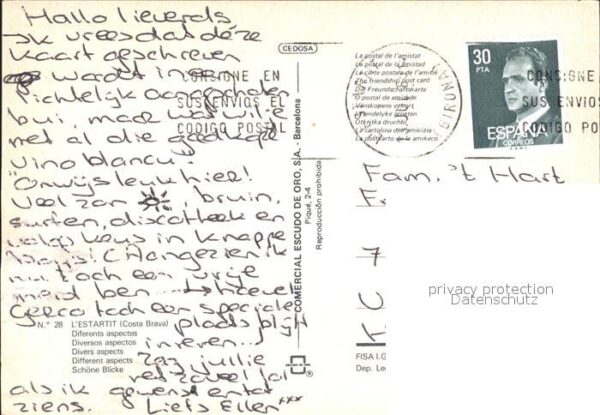 Hallo lieverds
Ik vrees dat deze
kaart geschreven
wordt in
zichtelijk aangeschoten
bui, maar wat wil je
met al die goedkope
vino blancu.
Onwijs leuk hier!
Veel zon, bruin,
surfen, discotheek en
volop keus in knappe
boys! (Aangezien ik
nu toch een vrije
meid ben → hoewel
Gerco toch een speciale
plaats blijft
inneren...)
Zag jullie
net zoveel lol
als ik gewenst en tot
ziens. Liefs Ellen xxx
Nº 28 L'ESTARTIT (Costa Brava)
Diferents aspectes
Diversos aspectos
Divers aspects
Different aspects
Schöne Blicke
CEDOSA
COMERCIAL ESCUDO DE ORO, S.A. - Barcelona
Piqué, 2-4
Reproducción prohibida
La postal de l'amistat
La postal de la amistad
La carte postale de l'amitié
The friendship post card
Die Freundschaftskarte
O postal de amizade
La cartolina dell'amicizia
La postkarto de amikeco
CONSIGNE EN
SUS ENVIOS EL
CODIGO POSTAL
30
PTA
ESPAÑA
CORREOS
CONSIGNE
SUS ENVIOS
CODIGO POST
Fam. 't Hart
FISA I.G
Dep. Le
privacy protection
Datenschutz